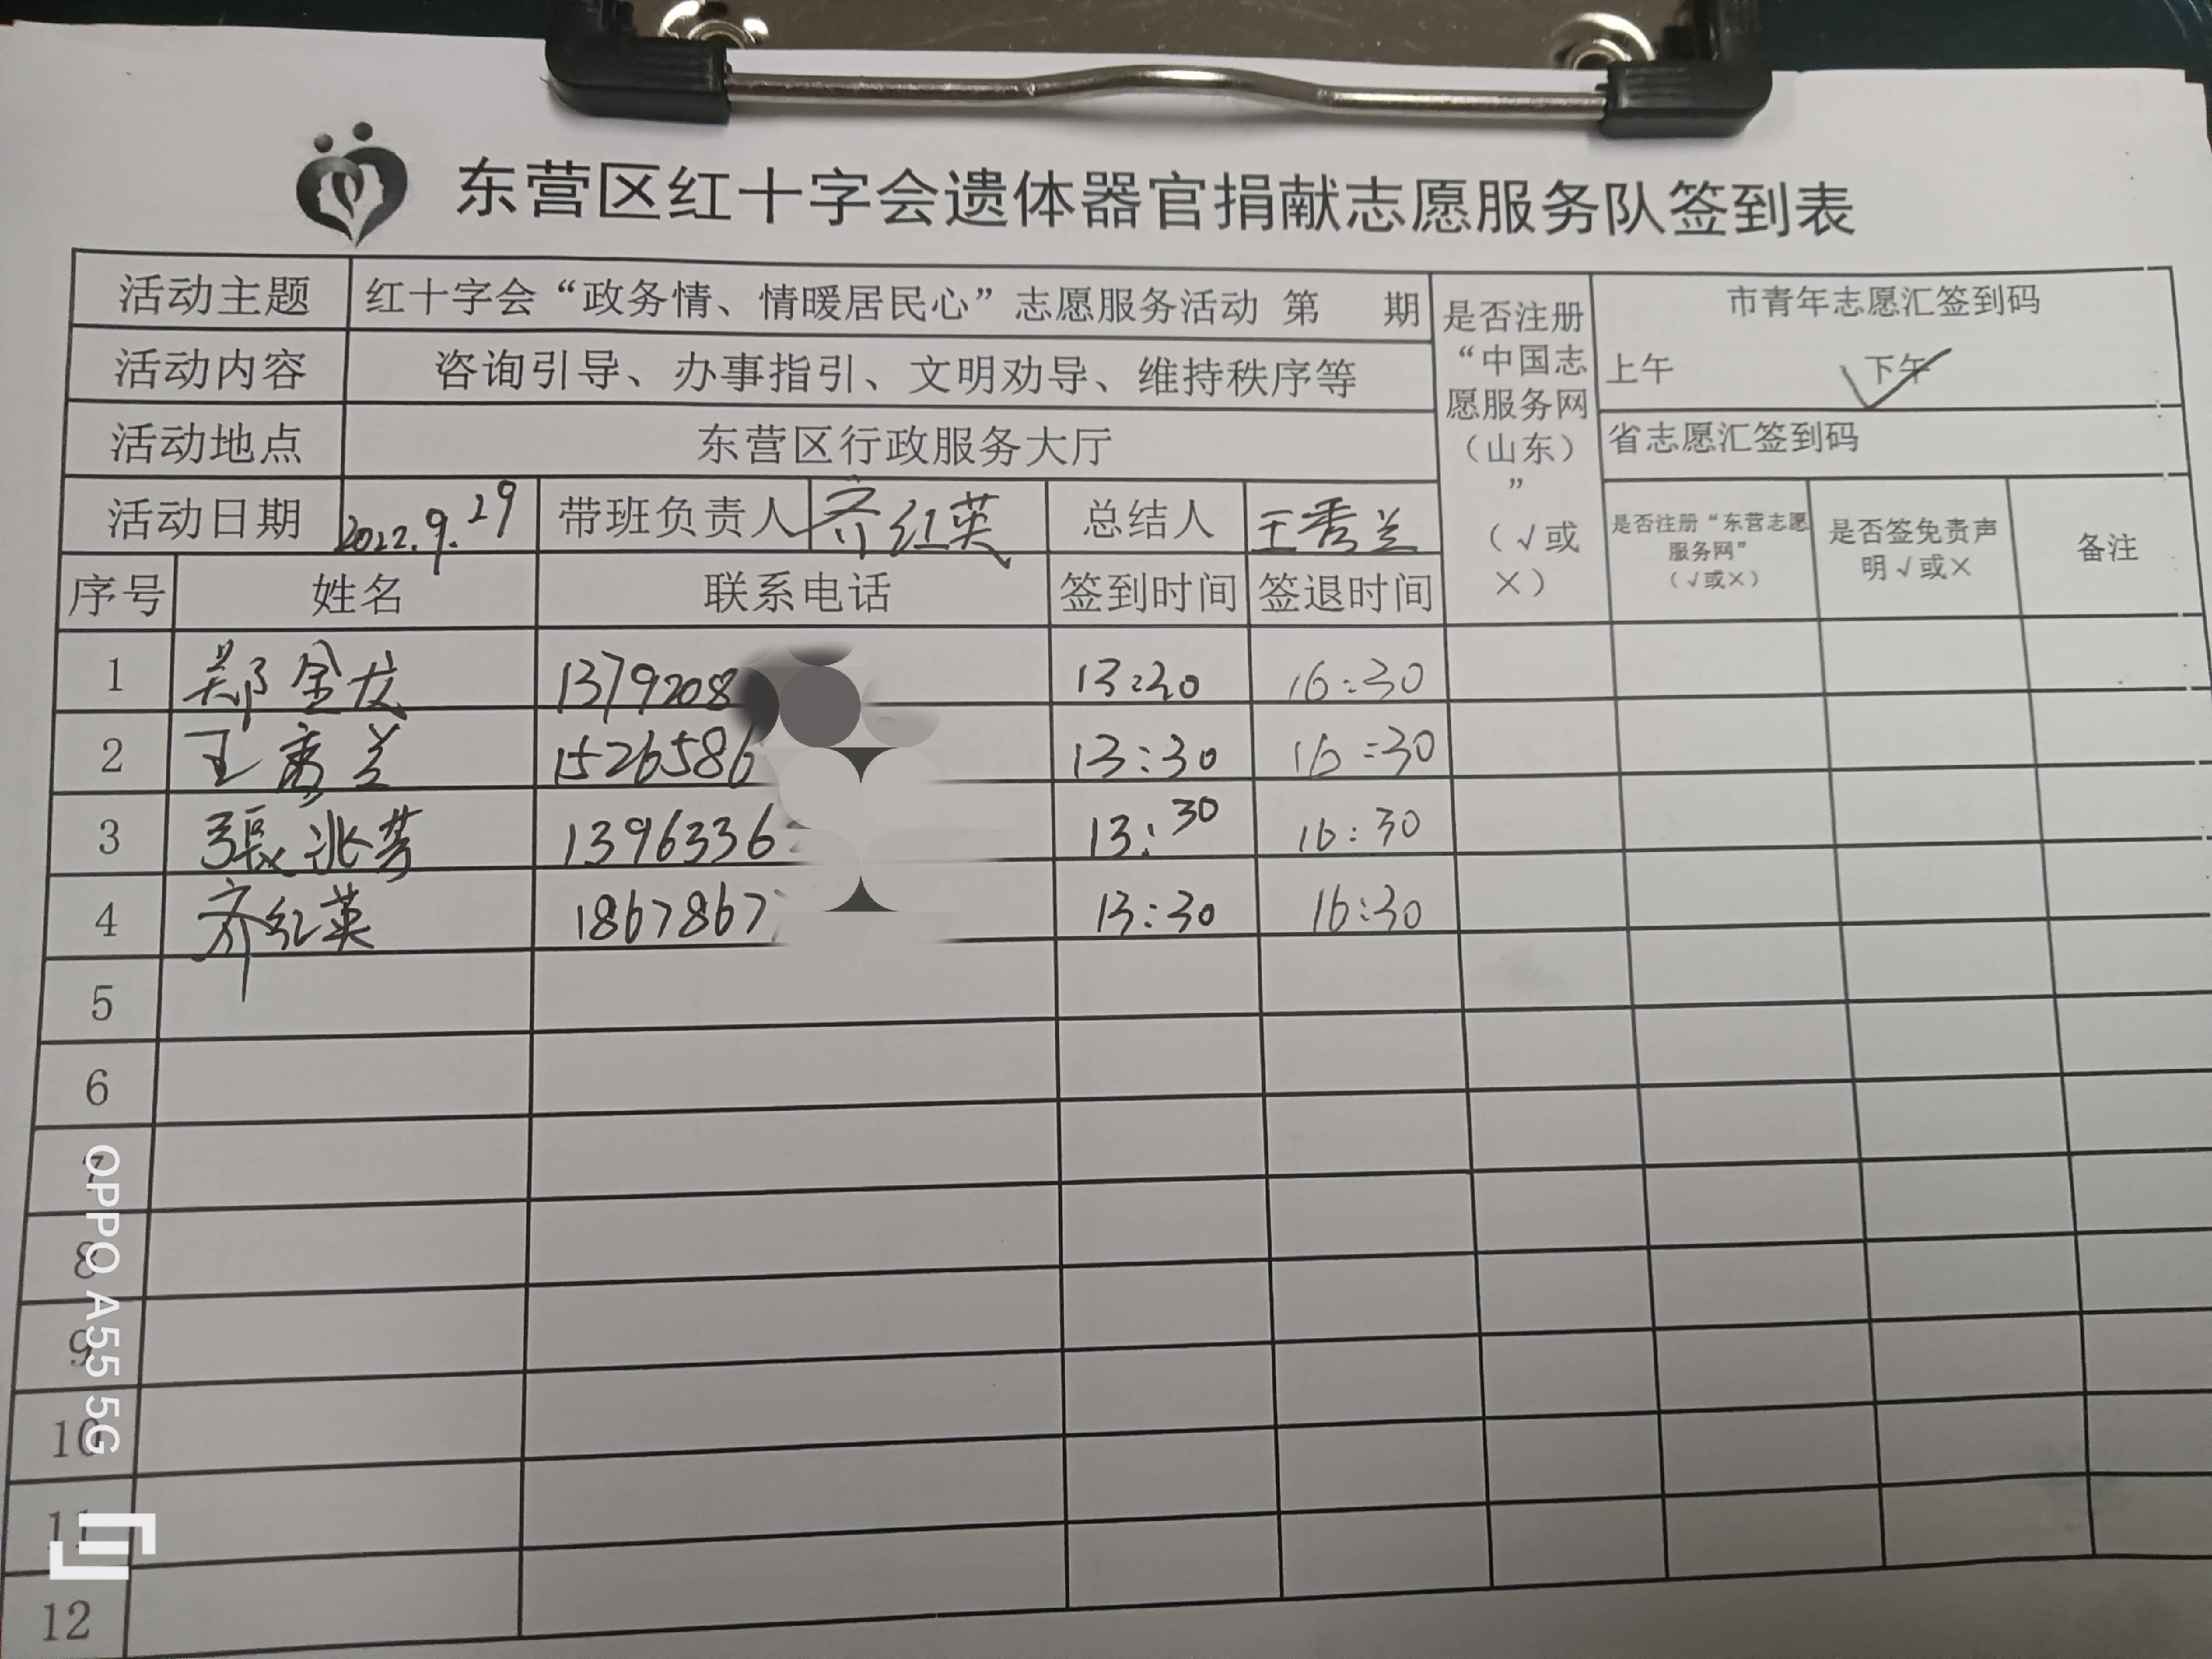 东营区红十字会遗体器官捐献志愿服务队签到表
活动主题 红十字会“政务情、情暖居民心”志愿服务活动 第 期
活动内容 咨询引导、办事指引、文明劝导、维持秩序等
活动地点 东营区行政服务大厅
活动日期 2022.9.29 带班负责人 齐红英 总结人 王秀兰
是否注册
“中国志
愿服务网
（山东）
”
（√或
×）
市青年志愿汇签到码
上午 下午
省志愿汇签到码
是否注册“东营志愿
服务网”
（√或×）
是否签免责声
明√或×
备注
序号 姓名 联系电话 签到时间 签退时间
1 郑金友 1379208 13:20 16:30
2 王秀兰 1526586 13:30 16:30
3 張兆芳 1396336 13:30 16:30
4 齐红英 1867867 13:30 16:30
5
6
7
8
9
10
11
12
OPPO A55 5G